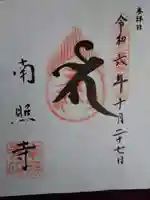 参拝日
令和六年十月二十七日
南照寺